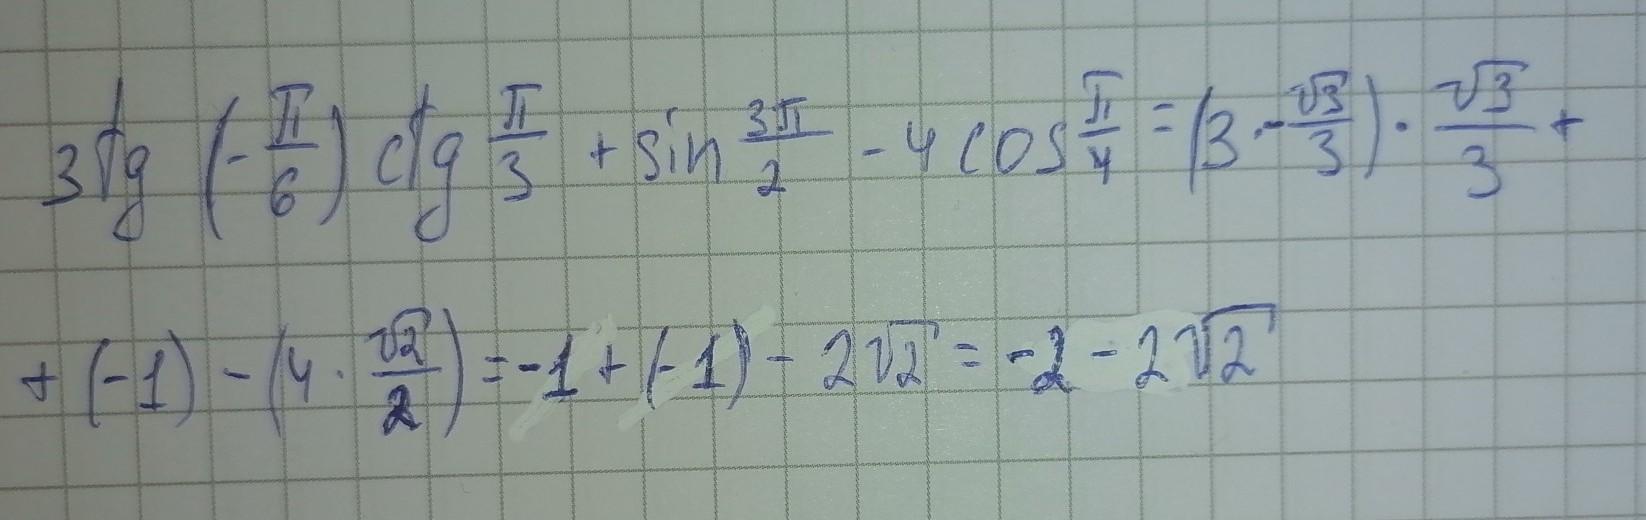 3tg (-π/6) ctg π/3 + sin 3π/2 - 4 cos π/4 = (3 · -√3/3) · √3/3 +
+ (-1) - (4 · √2/2) = -1 + (-1) - 2√2 = -2 - 2√2